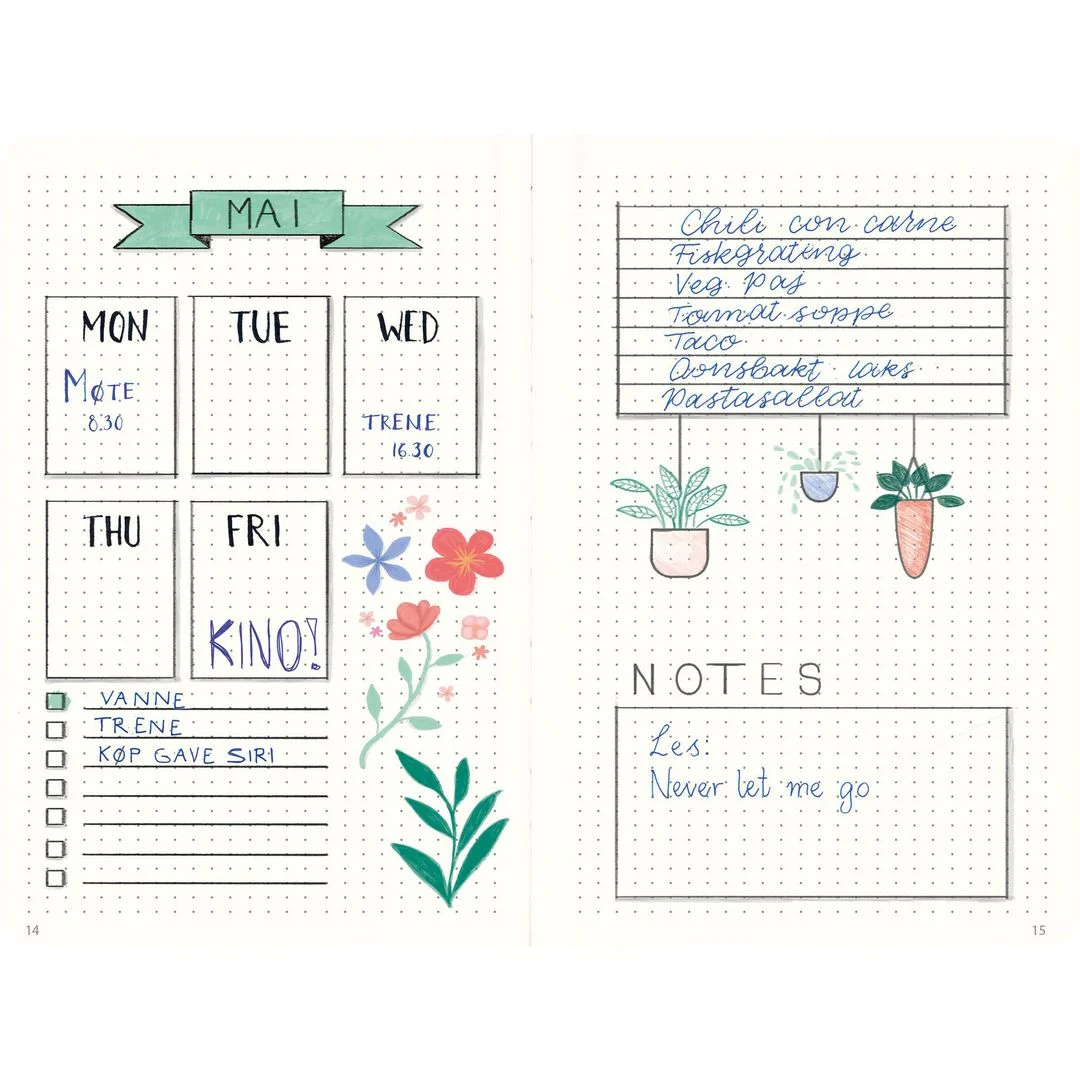 MAI
MON
MØTE
8.30
TUE
WED
TRENE
16.30
THU
FRI
KINO!
VANNE
TRENE
KØP GAVE SIRI
14
Chili con carne
Fiskgrateng
Veg. paj
Tomat.soppe
Taco
Ovnsbakt laks
Pastasallat
NOTES
Les:
Never let me go
15